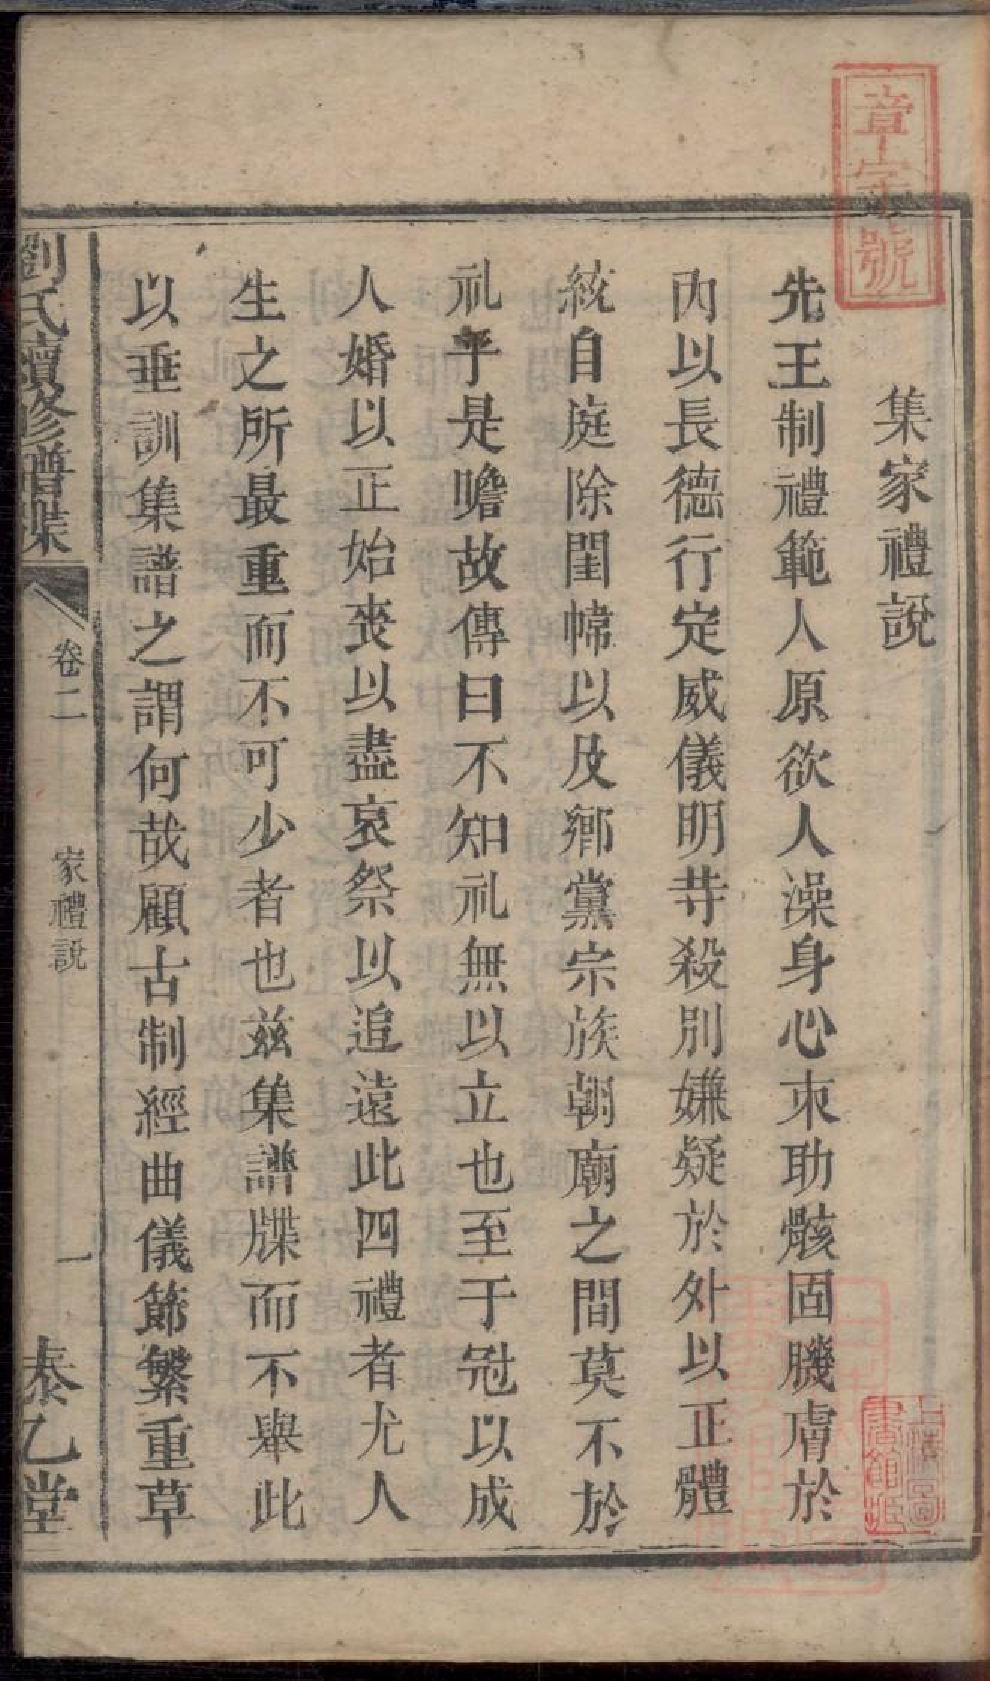 集家禮說
先王制禮範人原欲人澡身心束肋骸固膚於
內以長德行定威儀明等殺別嫌疑於外以正體
統自庭除閨幃以及鄉黨宗族朝廟之間莫不於
礼乎是瞻故傳曰不知礼無以立也至于冠以成
人婚以正始丧以盡哀祭以追遠此四禮者尤人
生之所最重而不可少者也兹集譜牒而不舉此
以垂訓集譜之謂何哉顧古制經曲儀節繁重草
劉氏續修譜牒
卷二
家禮說
一
泰乙堂
章字號
上海圖書館藏